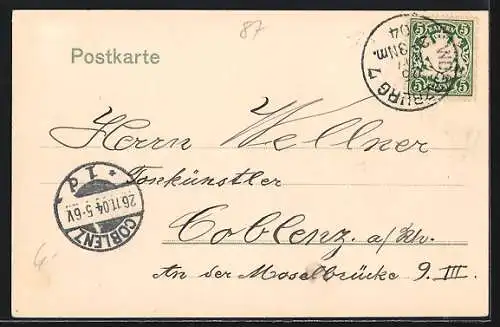 87
Postkarte
WÜRZBURG 7
3Nm.
04
5 5
Herrn Wellner
Tonkünstler
Coblenz a/Rh.
An der Moselbrücke 9. III.
COBLENZ
26.11.04.5-6V.
* 1 d